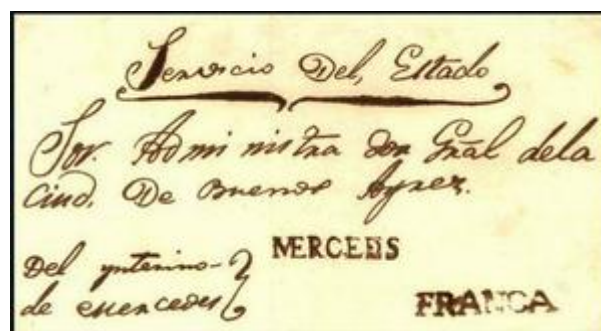 Servicio Del, Estado
Sor. Administra dor Gral dela
Ciud. De Buenos Ayrez.
Del ynterino-
de mercedes
MERCEDS
FRANCA